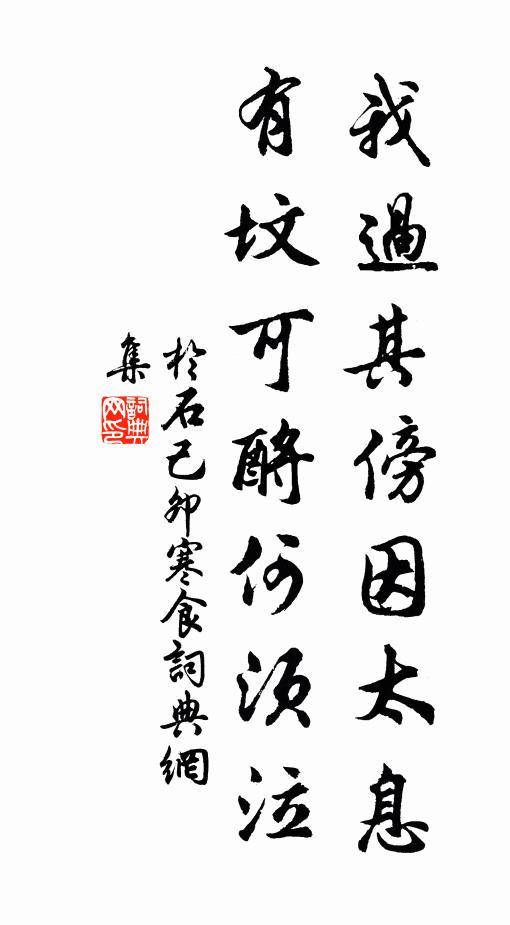 我過其傍因太息
有墳可酹何須泣
於石己卯寒食詞典網
集
詞典網印